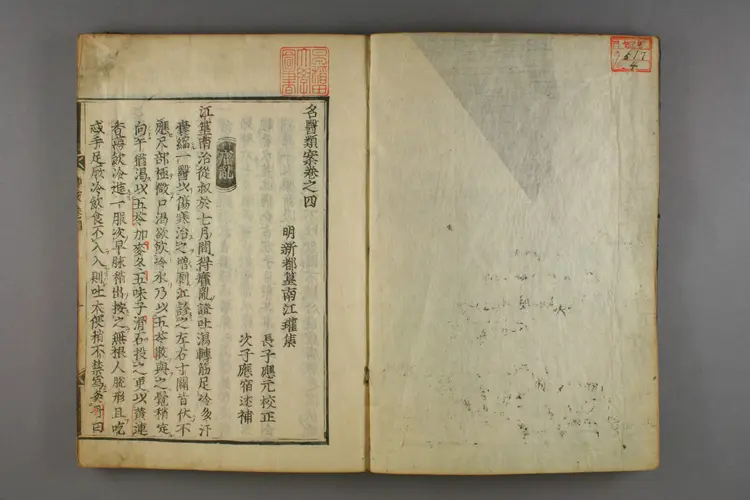 名醫類案卷之四
明新都篁南江瓘集
長子應元校正
次子應宿述補
霍亂
江篁南治從叔於七月間得霍亂證吐瀉轉筋足冷多汗
囊縮一醫以傷寒治之增劇江診之左右寸關皆伏不
應尺部極微口渴欲飲冷水乃以五苓散與之覺稍定
向午猶渴以五苓加麥冬五味子滑石投之更以黃連
香薷飲冷進一服次早脉稍出按之無根人脫形且呃
或手足厥冷飲食不入入則吐大便稍不禁為灸
曰